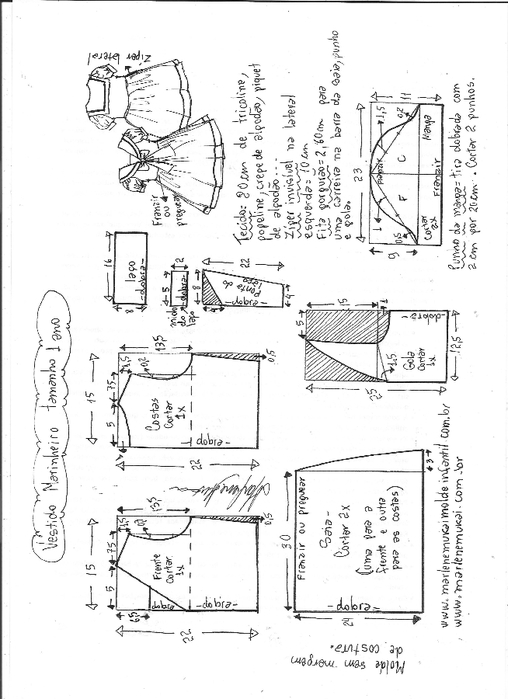 Vestido Marinheiro tamanho 1 ano
Molde sem margem
de costura.
15
5
7,5
1,5
0,2
13,5
6,5
Frente
Cortar
1x
dobra
-dobra-
22
0,5
15
5
7,5
1,5
0,2
13,5
Costas
Cortar
1x
-dobra-
22
0,5
16
8
laço
-dobra-
5
2
-dobra-
meio
do
laço
22
8
4
4
ponta do
laço
-dobra-
Zíper lateral
Franzir
ou
preguear
Tecido: 80 cm de tricoline,
popoline, crepe de algodão, piquet
de algodão...
Zíper invisível na lateral
esquerda= 10 cm
Fita gorgurão= 2,60m para
uma carreira na barra da saia, punho
e gola.
30
Franzir ou preguear
Saia-
Cortar 2x
(uma para a
frente e outra
para as costas)
-dobra-
3
5
15
1
1,5
Gola
Cortar
1x
-dobra-
25
12,5
23
11
9
1
0,5
1,5
0,2
F
C
Franzir
Cortar
2x
Franzir
Manga
Punho da manga= tira dobrada com
2 cm por 21cm. Cortar 2 punhos.
www.marlenemukaimoldeinfantil.com.br
www.marlenemukai.com.br